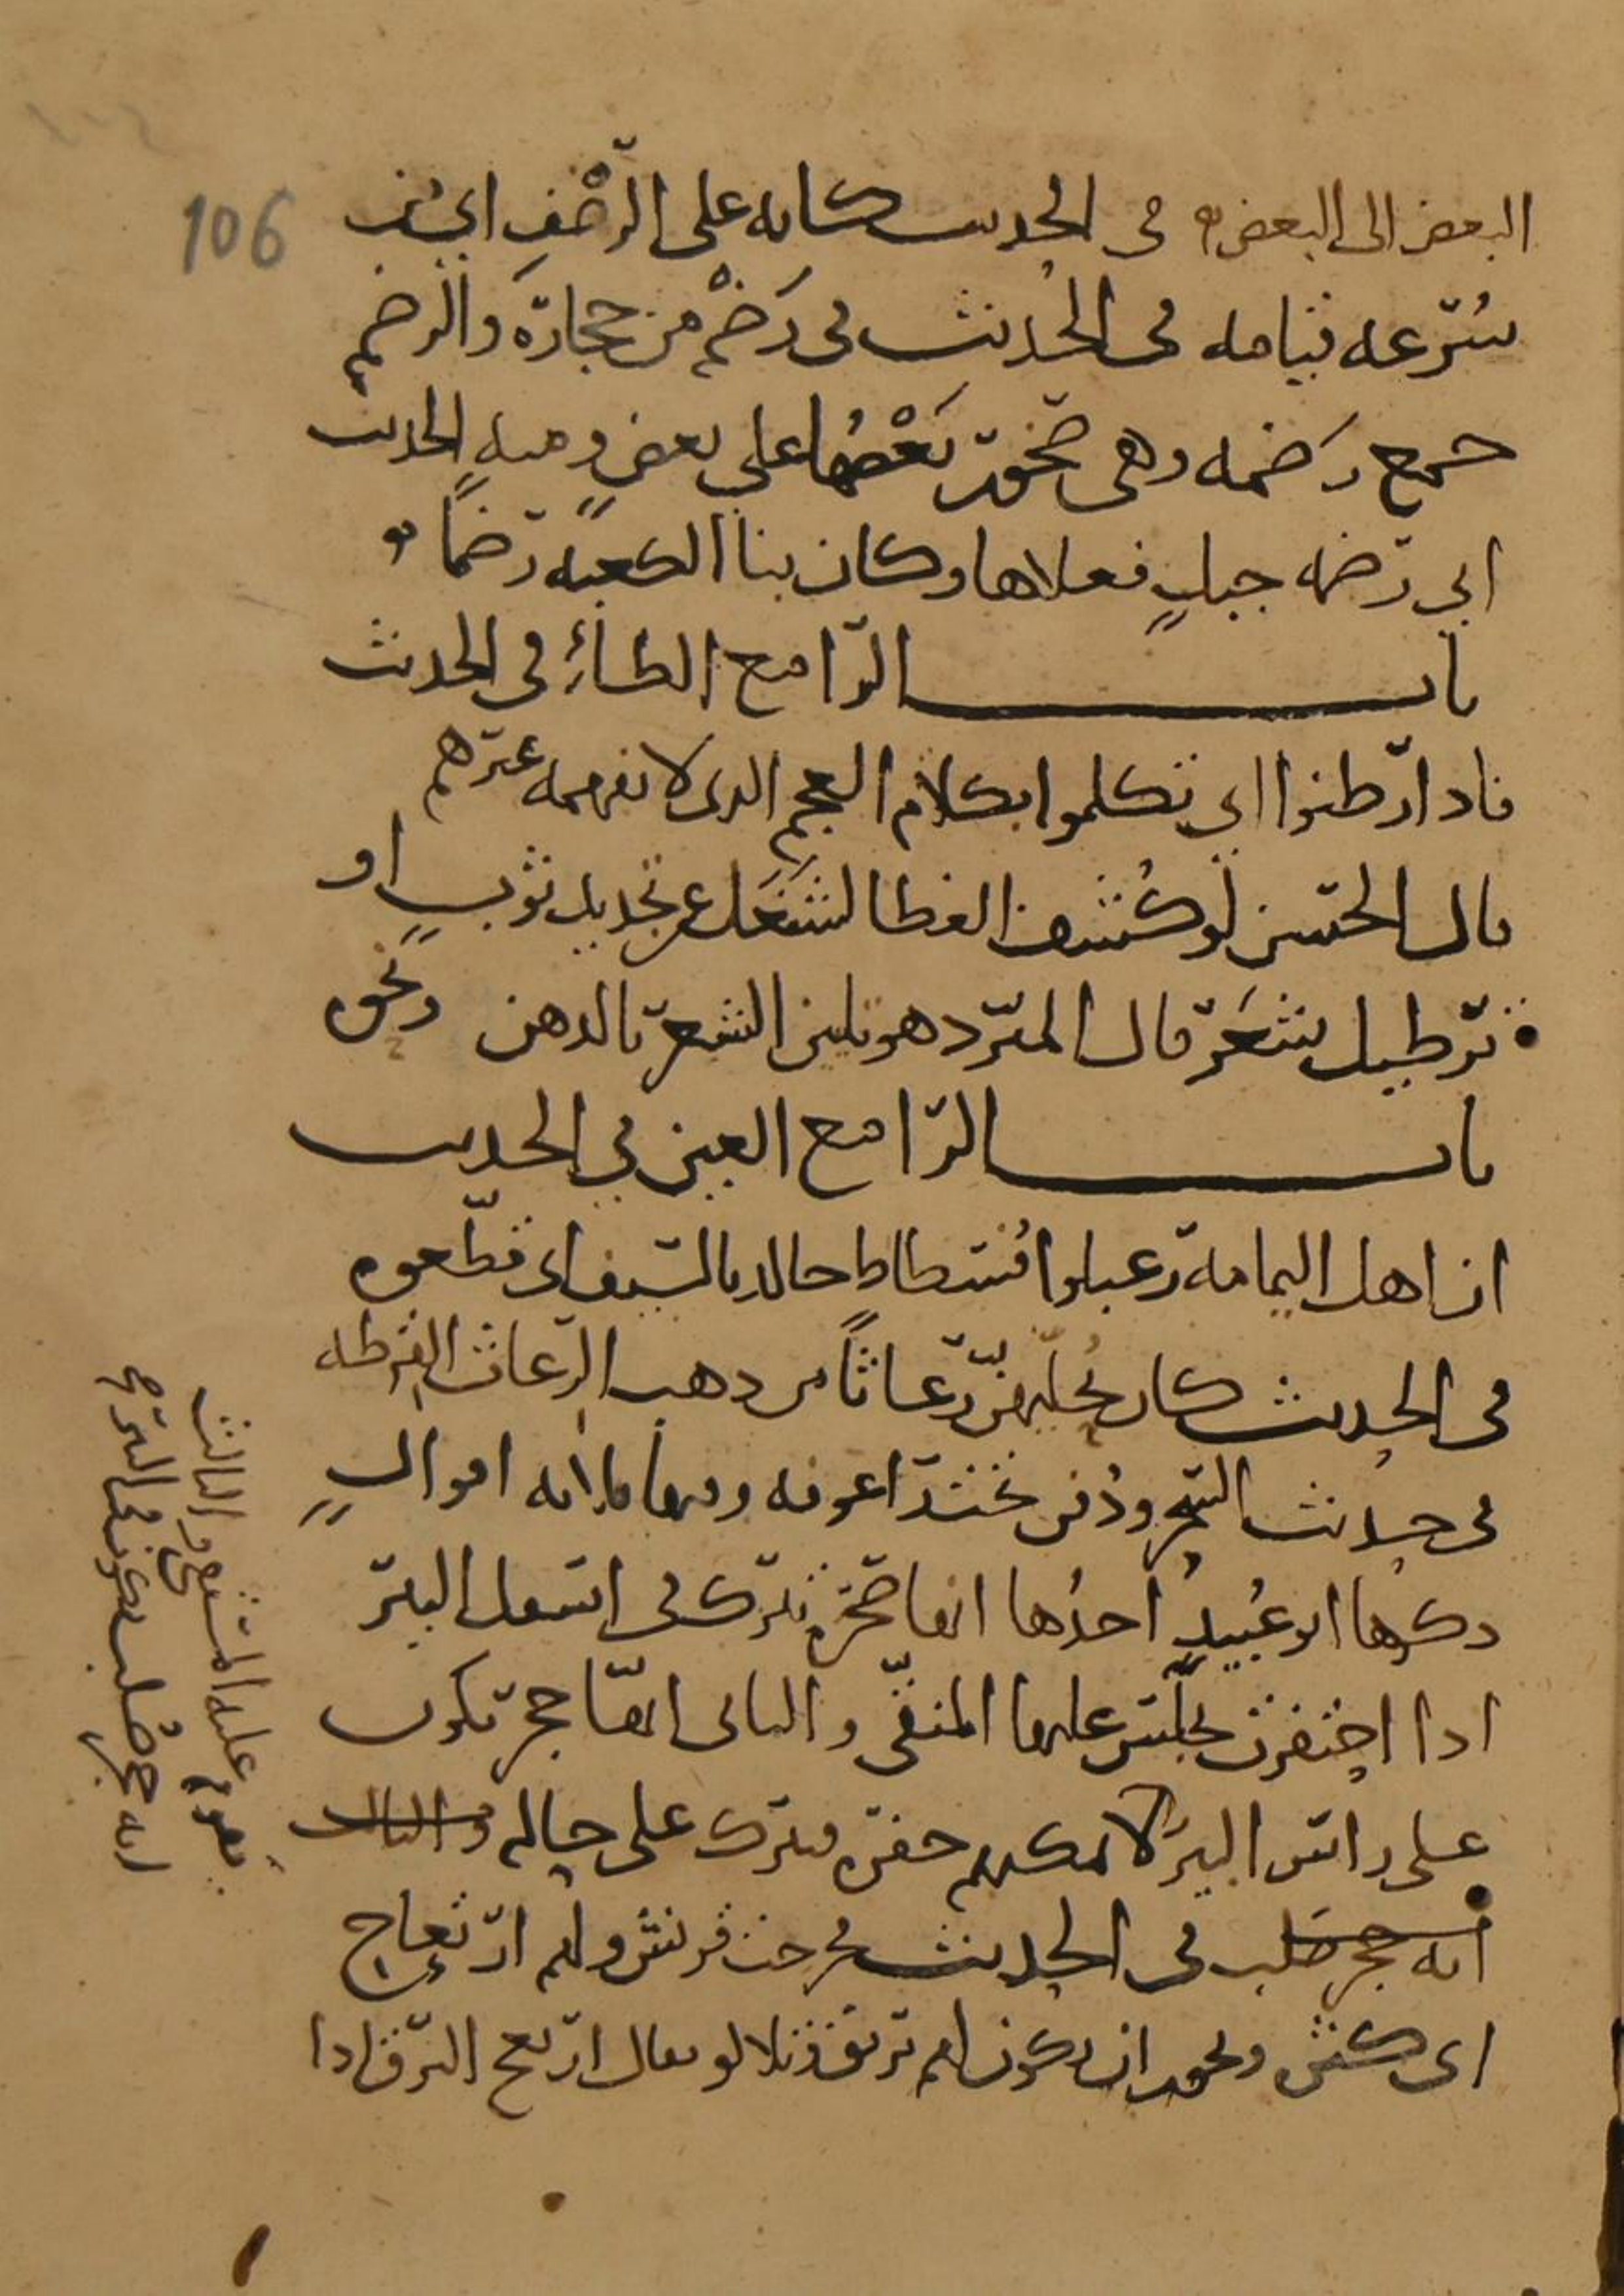 106
البعض الى البعض في الحديث كانه على الرَّضْفِ اي
سُرعه قيامه في الحديث في رَضْم من حجارة والرضم
جمع رَضمه وهي صخور بَعْضُها على بعضٍ ومنه الحديث
اتى رضمه جبلٍ فعلاها وكان بنا الكعبه رضمًا
باب الرا مع الطاء في الحديث
فاذا رطنوا اي تكلموا بكلام العجم الذي لا يفهمه غيرهم
قال الحسن لو كُشف الغطا لشُغل عن تجديد ثوبٍ او
ترطيل شَعر قال المبرد هو تليين الشعر بالدهن ونحوه
باب الرا مع العين في الحديث
ان اهل اليمامة رعبلوا فُسطاط خالد بالسيف اي قطّعوه
في الحديث كان يُحلّيهنّ رعاثًا من ذهب الرعاث القرطه
في حديث السحر ودُفن تحت راعوفه وفيها ثلاثه اقوالٍ
ذكرها ابو عُبيدٍ احدُها انها صخرة تترك في اسفل البئر
اذا احتفرت يجلس عليها المنقّي والثاني انها حجر تكون
على راس البير لا يمكنهم حفره فيترك على حاله والثالث
انه حجر صلب في الحديث خرجت قريش ولهم ارتعاج
اي ويجوز ان يكون لهم بريق وتلالو يقال ارتعج البرق اذا
يقوم عليه المستقي والثالث
انه حجر صُلب